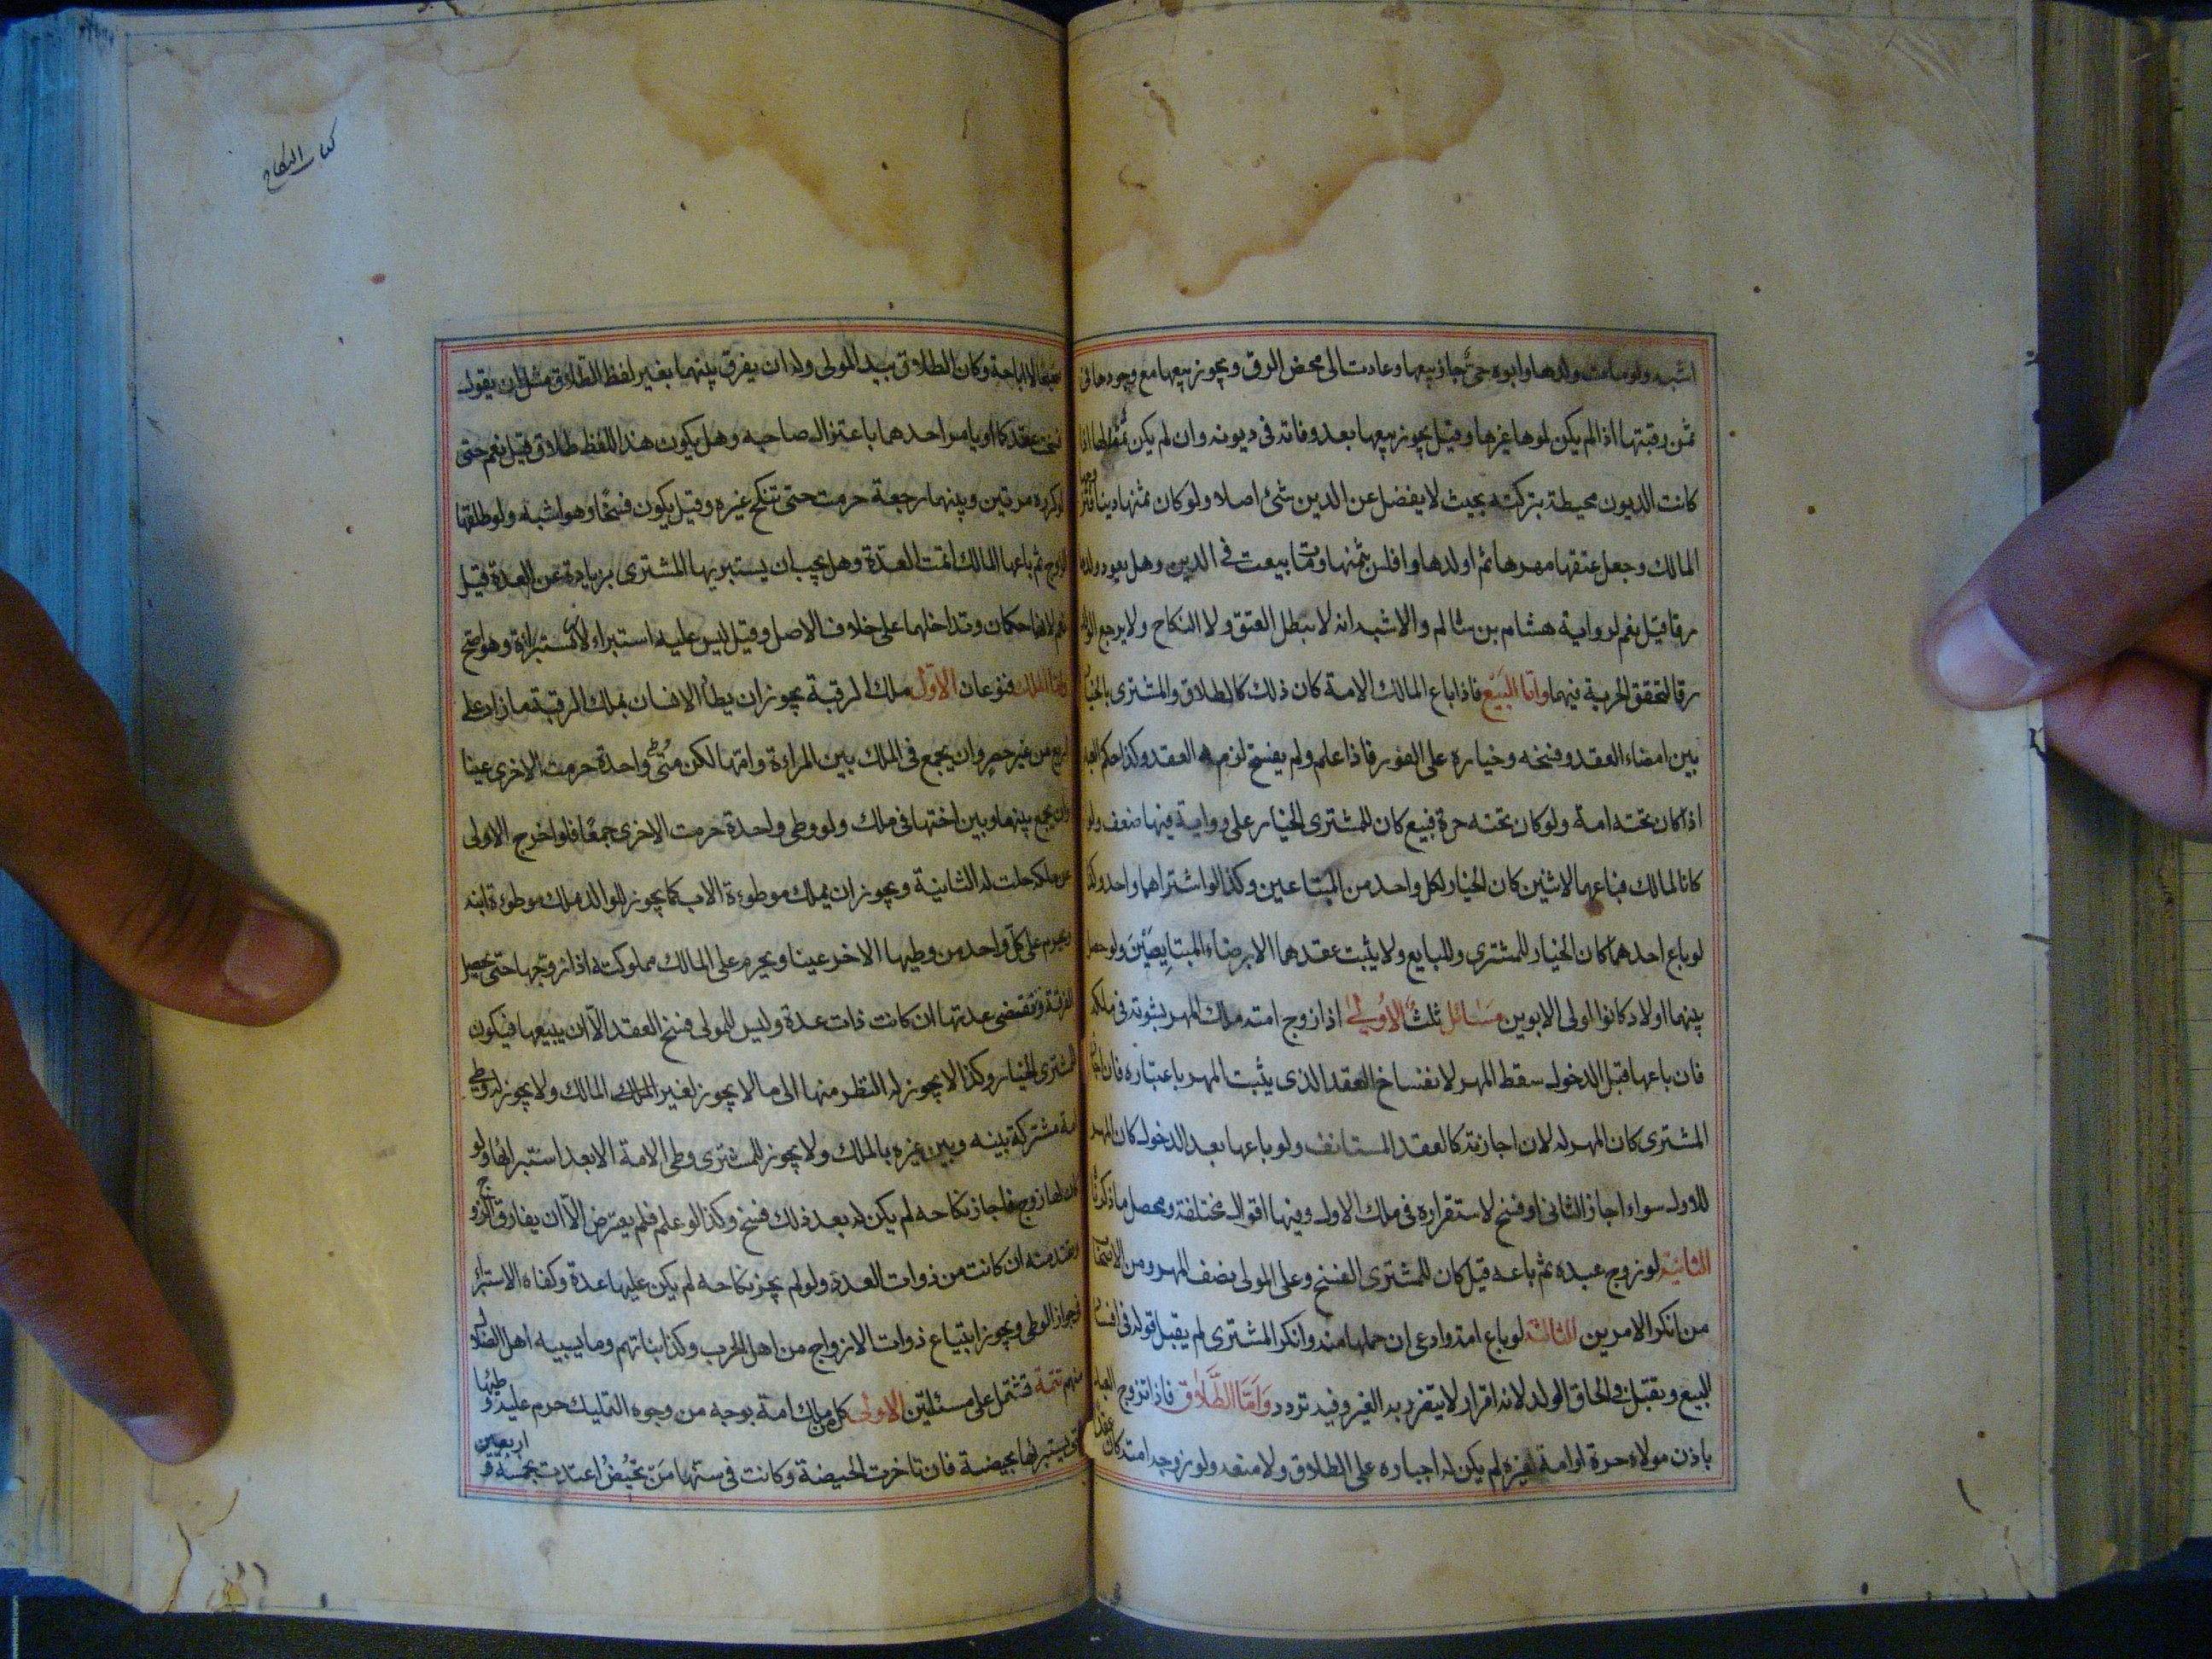 اشبه ولو مات ولدها وابوه حيّ جاز بيعها وعادت الى محض الرق ويجوز بيعها مع وجودها فى
ثمن رقبتها اذا لم يكن لموها غيرها وقيل يجوز بيعها بعد وفاته فى ديونه وان لم يكن ثمنا لها اذا
كانت الديون محيطة بتركته بحيث لا يفضل عن الدين شئ اصلا ولو كان ثمنها دينا فتزوجها
المالك وجعل عتقها مهرها ثم اولدها وافلس بثمنها ومات بيعت فى الدين وهل يعود ولدها
رقا قيل نعم لرواية هشام بن سالم والاشبه انه لا يبطل العتق ولا النكاح ولا يرجع الولد
رقا لتحقق الحرية فيهما واما البيع فاذا باع المالك الامة كان ذلك كالطلاق والمشترى بالخيار
بين امضاء العقد وفسخه وخياره على الفور فاذا علم ولم يفسخ لزم العقد وكذا حكم العبد
اذا كان تحته امة ولو كان تحته حرة فبيع كان للمشترى الخيار على رواية فيها ضعف ولو
كانا لمالك فباعهما لاثنين كان الخيار لكل واحد من المبتاعين وكذا لو اشتراهما واحد وكذا
لو باع احدهما كان الخيار للمشترى وللبايع ولا يثبت عقدهما الا برضاء المتبايعين ولو حصل
بينهما اولاد كانوا لمولى الابوين مسائل ثلث الاولى اذا زوج امته ملك المهر لثبوته فى ملكه
فان باعها قبل الدخول سقط المهر لانفساخ العقد الذى يثبت المهر باعتباره فان اجاز
المشترى كان المهر له لان اجازته كالعقد المستانف ولو باعها بعد الدخول كان المهر
للاول سواء اجاز الثانى او فسخ لاستقراره فى ملك الاول وفيها اقوال مختلفة ومحصل ما ذكرناه
الثانية لو زوج عبده ثم باعه قيل كان للمشترى الفسخ وعلى المولى نصف المهر ومن الاصحاب
من انكر الامرين الثالثة لو باع امته وادعى ان حملها منه وانكر المشترى لم يقبل قوله فى افساد
البيع ويقبل فى الحاق الولد لانه اقرار لا يتضرر به الغير وفيه تردد واما الطلاق فاذا تزوج العبد
باذن مولاه حرة او امة لغيره لم يكن له اجباره على الطلاق ولا منعه ولو زوجه امته كان عقدا
كتاب النكاح
صحيحا لا اباحة وكان الطلاق بيد المولى وله ان يفرق بينهما بغير لفظ الطلاق مثل ان يقول
فسخت عقدكما او يامر احدهما باعتزال صاحبه وهل يكون هذا اللفظ طلاق قيل نعم حتى
لو كرره مرتين وبينهما رجعة حرمت حتى تنكح غيره وقيل يكون فسخا وهو اشبه ولو طلقها
الزوج ثم باعها المالك اتمت العدة وهل يجب ان يستبريها المشترى بزيادة عن العدة قيل
نعم لانهما حكمان وتداخلهما على خلاف الاصل وقيل ليس عليه استبراء لانها مستبراة وهو اصح
واما الملك فنوعان الاول ملك الرقبة يجوز ان يطأ الانسان بملك الرقبة ما زاد على
اربع من غير حصر وان يجمع فى الملك بين المراءة وامها لكن متى وطئ واحدة حرمت الاخرى عينا
وان يجمع بينها وبين اختها فى ملك ولو وطى واحدة حرمت الاخرى جمعا فلو اخرج الاولى
عن ملكه حلت له الثانية ويجوز ان يملك موطوءة الاب كما يجوز للوالد ملك موطوءة ابنه
ويحرم على كل واحد من وطيها الاخر عينا ويحرم على المالك مملوكته اذا زوجها حتى تحصل
الفرقة وتنقضى عدتها ان كانت ذات عدة وليس للمولى فسخ العقد الا ان يبيعها فيكون
للمشترى الخيار وكذا لا يجوز له النظر منها الى ما لا يجوز لغير المالك ولا يجوز له وطى
امة مشتركة بينه وبين غيره بالملك ولا يجوز للمشترى وطى الامة الا بعد استبرائها ولو
كان لها زوج فاجاز نكاحه لم يكن له بعد ذلك فسخ وكذا لو علم فلم يعترض الا ان يفارق الزوج
وتعتد منه ان كانت من ذوات العدة ولو لم يجز نكاحه لم يكن عليها عدة وكفاه الاستبراء
فى جواز الوطى ويجوز ابتياع ذوات الازواج من اهل الحرب وكذا بناتهم وما يسبيه اهل الضلال
منهم تتمة تشتمل على مسئلتين الاولى كل من ملك امة بوجه من وجوه التمليك حرم عليه وطيها
حتى يستبرئها بحيضة فان تاخرت الحيضة وكانت فى سنها من تحيض اعتدت بخمسة واربعين